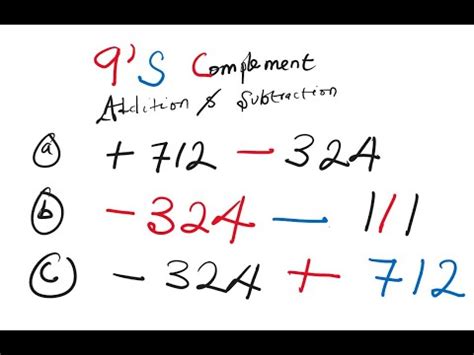 9'S Complement
Addition & Subtraction
(a) +712 - 324
(b) -324 - 111
(c) -324 + 712